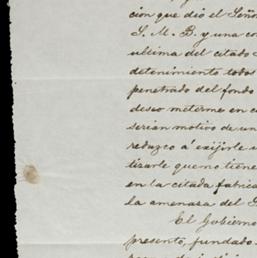 cion que dió el Señor
S. M. B. y una co
ultima del citado
detenimiento todos
penetrado del fondo
deseo meterme en c
serian motivo de un
reduzco á exijirle
tizarle que no tiene
en la citada fabrica
la amenaza del S
El Gobierno
presento, fundado